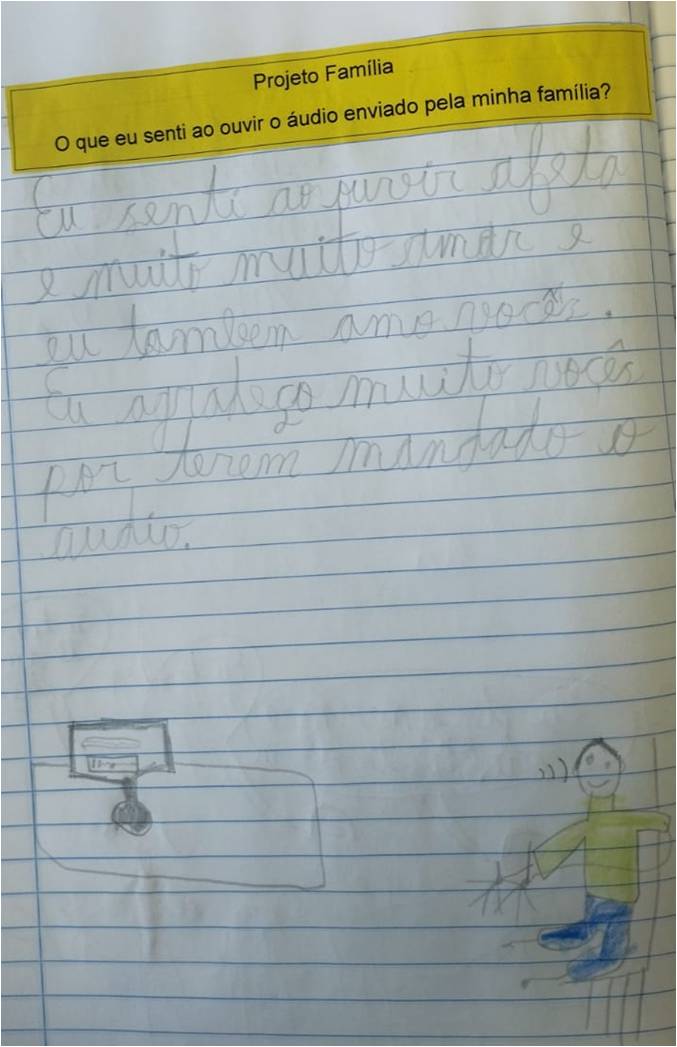 Projeto Família
O que eu senti ao ouvir o áudio enviado pela minha família?
Eu senti ao ouvir afeto
e muito muito amor e
eu tambem amo vocês.
Eu agradeço muito vocês
por terem mandado o
audio.